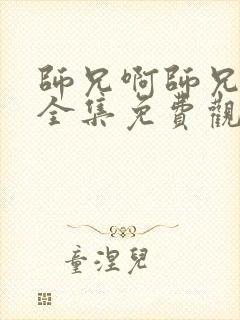 師兄啊師兄
全集免費觀
童涅兒